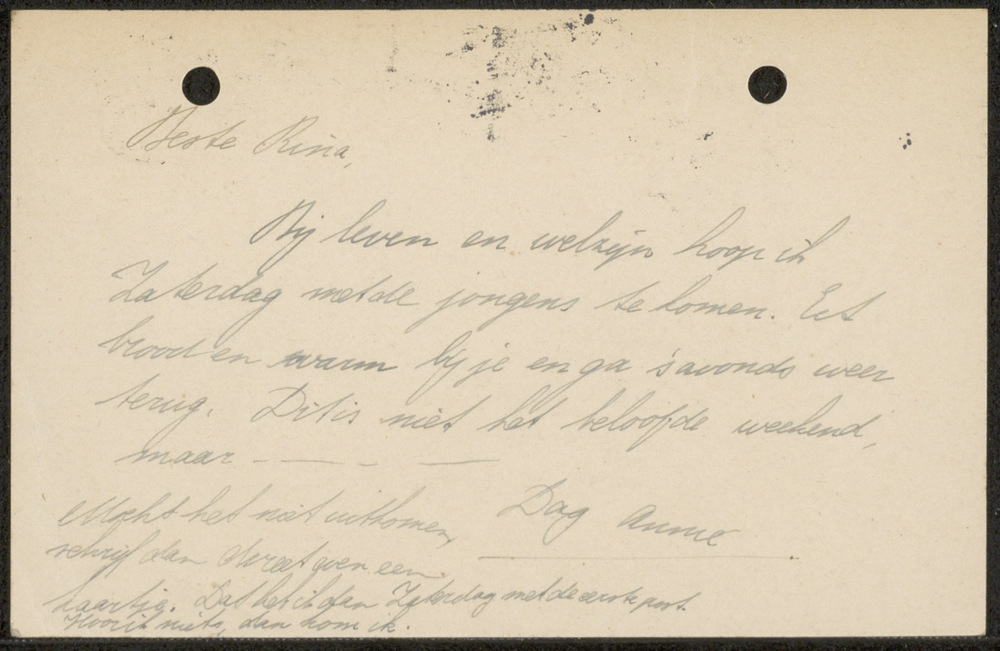 Beste Rina,
Bij leven en welzijn hoop ik
Zaterdag met de jongens te komen. Eet
brood en warm bij je en ga 's avonds weer
terug. Dit is niet het beloofde weekend,
maar - — - —
Dag Annie
Mocht het niet uitkomen,
schrijf dan direct even een
kaartje. Dat heb ik dan Zaterdag met de eerste post.
Hoor ik niets, dan kom ik.